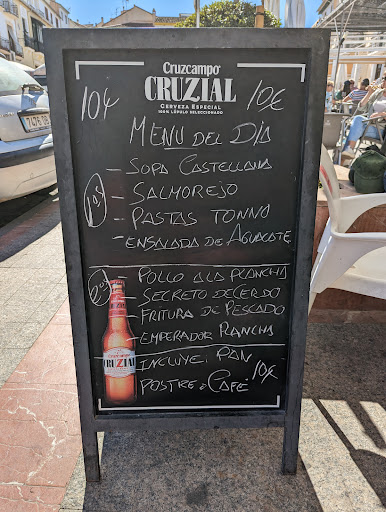 Cruzcampo
CRUZIAL
CERVEZA ESPECIAL
100% LÚPULO SELECCIONADO
10€ 10€
MENU DEL DÍA
- SOPA CASTELLANA
1os - SALMOREJO
- PASTAS TONNO
- ENSALADA DE AGUACATE
- POLLO A LA PLANCHA
2os - SECRETO DE CERDO
- FRITURA DE PESCADO
- EMPERADOR PLANCHA
INCLUYE: PAN
POSTRE o CAFÉ 10€
CRUZIAL